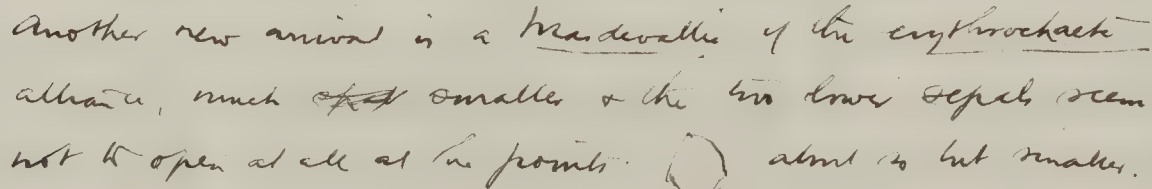 Another new arrival is a Masdevallia of the erythrochaete
alliance, much smaller & the two lower sepals seem
not to open at all at the points. about so but smaller.